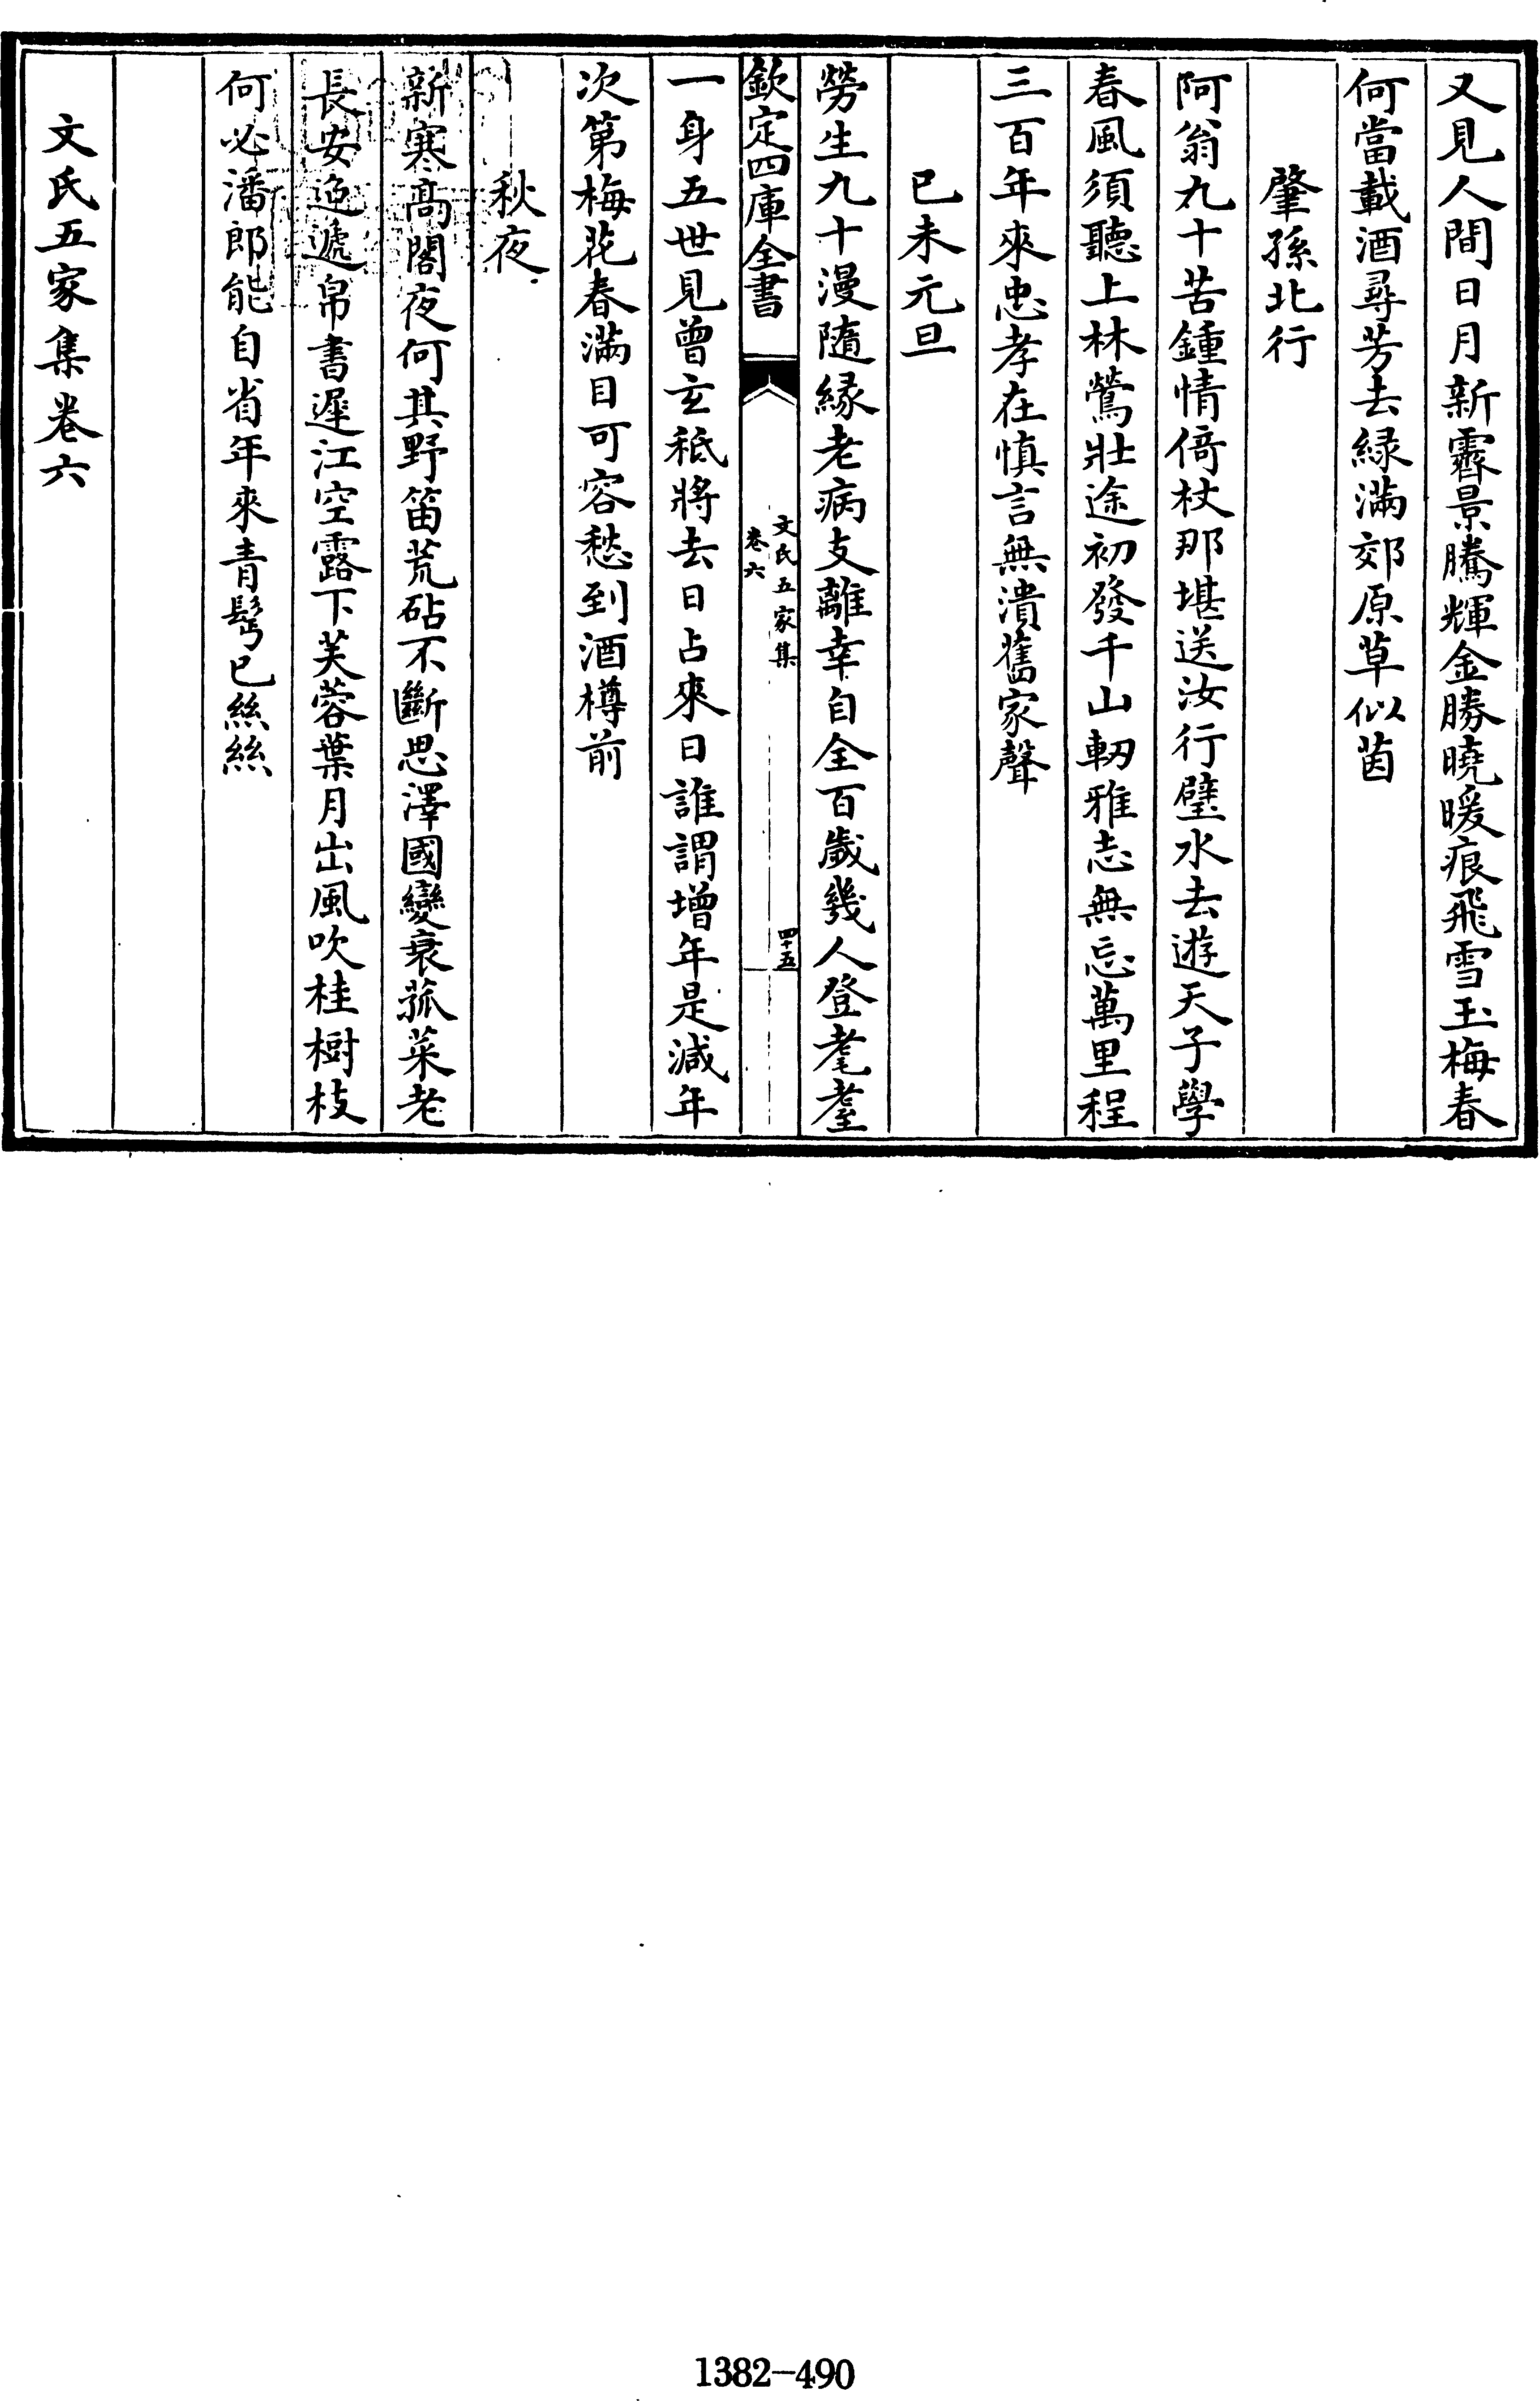 又見人間日月新霽景騰輝金勝曉暖痕飛雪玉梅春
何當載酒尋芳去緑滿郊原草似茵
肇孫北行
阿翁九十苦鍾情倚杖那堪送汝行璧水去遊天子學
春風須聽上林鶯壯途初發千山軔雅志無忘萬里程
三百年來忠孝在慎言無潰舊家聲
已未元旦
勞生九十漫隨緣老病支離幸自全百歲幾人登耄耋
欽定四庫全書
文氏五家集
卷六
四十五
一身五世見曾玄秪將去日占來日誰謂增年是減年
次第梅花春滿目可容愁到酒樽前
秋夜
新寒高閣夜何其野笛荒砧不斷思澤國變衰菰菜老
長安迢遞帛書遲江空露下芙蓉葉月出風吹桂樹枝
何必潘郎能自省年來青鬢已絲絲
文氏五家集卷六
1382-490